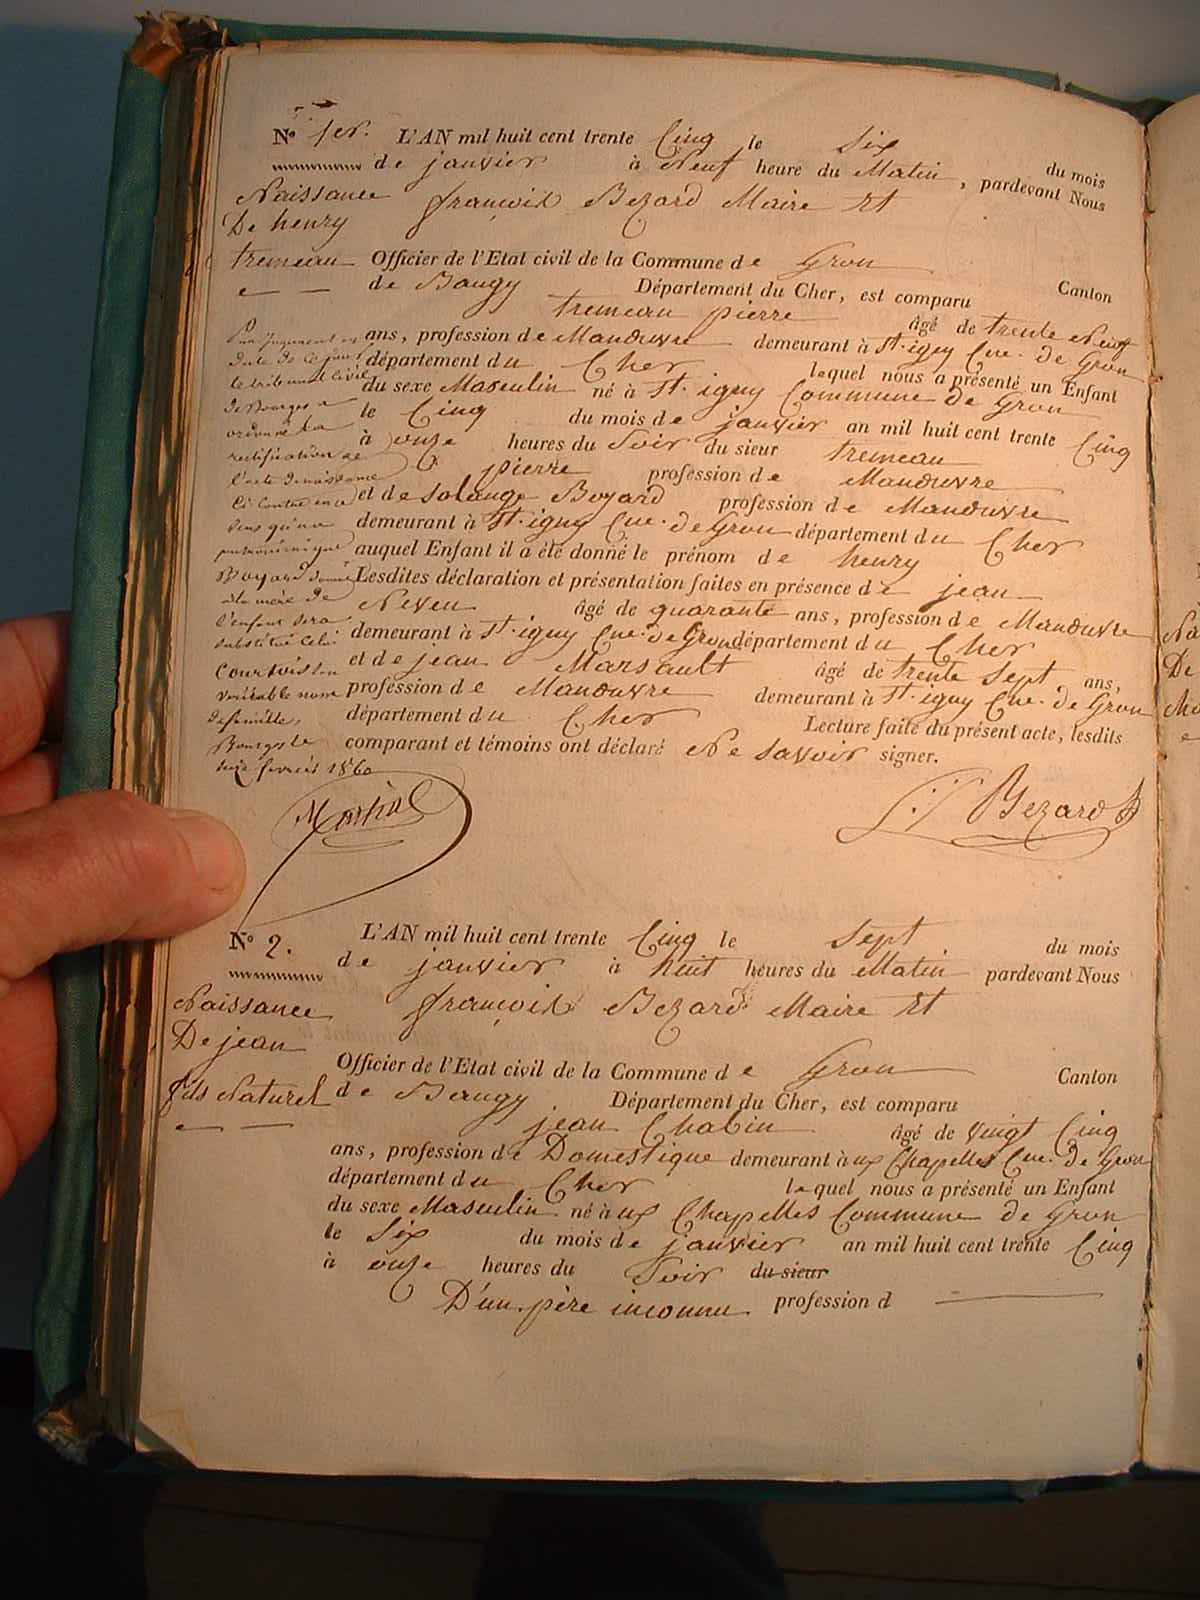 N° 1er. L'AN mil huit cent trente Cinq le Six du mois
de janvier à Neuf heure du Matin, pardevant Nous
Naissance
De henry
tremeau
françois Bezard Maire Et
Officier de l'Etat civil de la Commune de Gron Canton
de Baugy Département du Cher, est comparu
tremeau pierre âgé de trente Neuf
ans, profession de Manœuvre demeurant à St. igny Cne. de Gron
département du Cher lequel nous a présenté un Enfant
du sexe Masculin né à St. igny Commune de Gron
le Cinq du mois de janvier an mil huit cent trente Cinq
à onze heures du Soir du sieur tremeau
pierre profession de Manœuvre
et de Solange Boyard profession de Manœuvre
demeurant à St. igny Cne. de Gron département du Cher
auquel Enfant il a été donné le prénom de henry
Lesdites déclaration et présentation faites en présence de jean
Neveu âgé de quarante ans, profession de Manœuvre
demeurant à St. igny Cne. de Gron département du Cher
et de jean Marsault âgé de trente Sept ans,
profession de Manœuvre demeurant à St. igny Cne. de Gron
département du Cher Lecture faite du présent acte, lesdits
comparant et témoins ont déclaré Ne Savoir signer.
jugement en
date de ce jour
le tribunal civil
de Bourges a
ordonné la
rectification de
l'acte de naissance
ci contre en ce
sens qu'au
patronimique
Boyard donné
à la mère de
l'enfant sera
substitué celui
Courtois son
véritable nom
de famille,
Bourges le
février 1860
Martial
Bezard
N° 2. L'AN mil huit cent trente Cinq le Sept du mois
de janvier à huit heures du Matin pardevant Nous
Naissance
De jean
fils Naturel
françois Bezard Maire Et
Officier de l'Etat civil de la Commune de Gron Canton
de Baugy Département du Cher, est comparu
jean Chabin âgé de Vingt Cinq
ans, profession de Domestique demeurant aux Chapelles Cne. de Gron
département du Cher lequel nous a présenté un Enfant
du sexe Masculin né aux Chapelles Commune de Gron
le Six du mois de janvier an mil huit cent trente Cinq
à onze heures du Soir du sieur
D'un père inconnu profession d